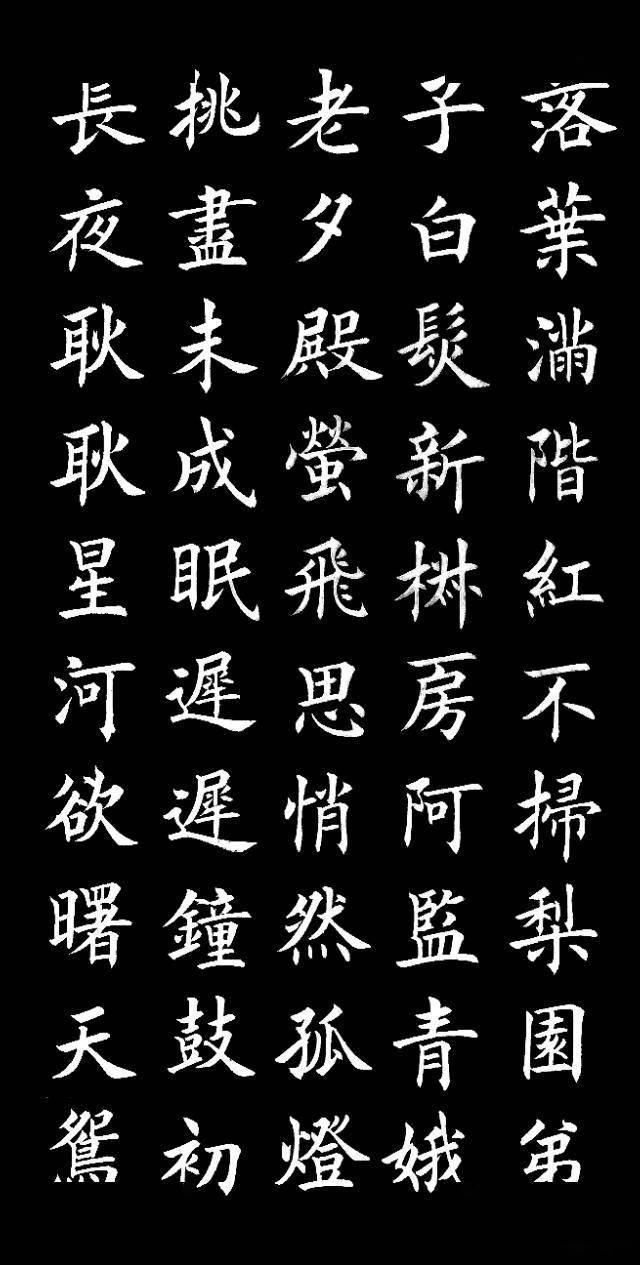 落葉滿階紅不掃梨園弟
子白髮新椒房阿監青娥
老夕殿螢飛思悄然孤燈
挑盡未成眠遲遲鐘鼓初
長夜耿耿星河欲曙天鴛